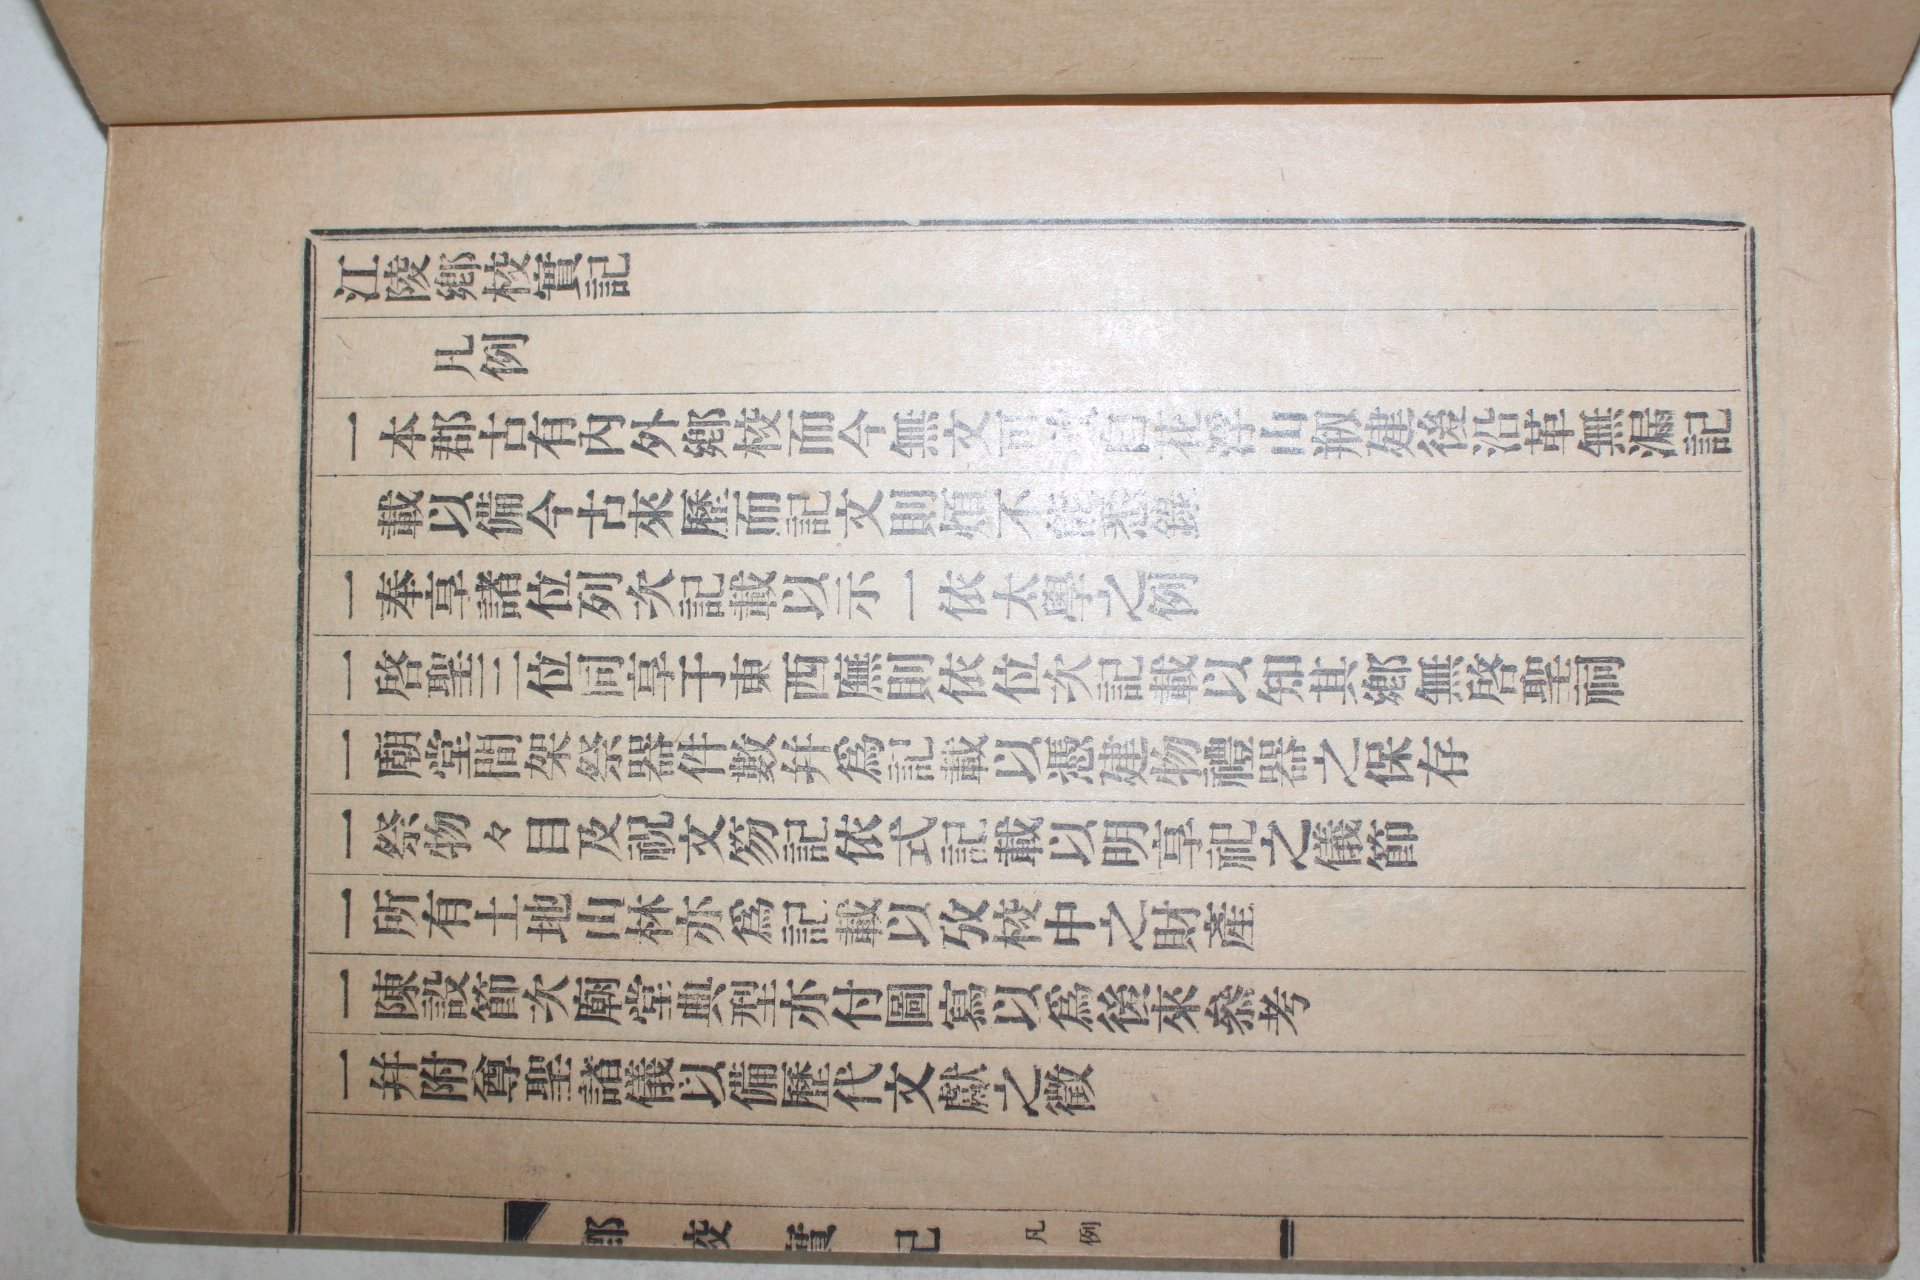 江陵鄕校實記
凡例
一本郡古有內外鄕校而今無文可攷自花浮山刱建後沿革無漏記
載以備今古來歷而記文則煩不能悉錄
一奉享諸位列次記載以示一依太學之例
一啓聖三位同享于東西廡則依位次記載以知其鄕無啓聖祠
一廟堂間架祭器件數幷爲記載以憑建物禮器之保存
一祭物々目及祝文笏記依式記載以明享祀之儀節
一所有土地山林亦爲記載以攷校中之財產
一陳設節次廟堂典型亦付圖寫以爲後來叅考
一幷附尊聖諸儀以備歷代文獻之徵
鄕校實記 凡例